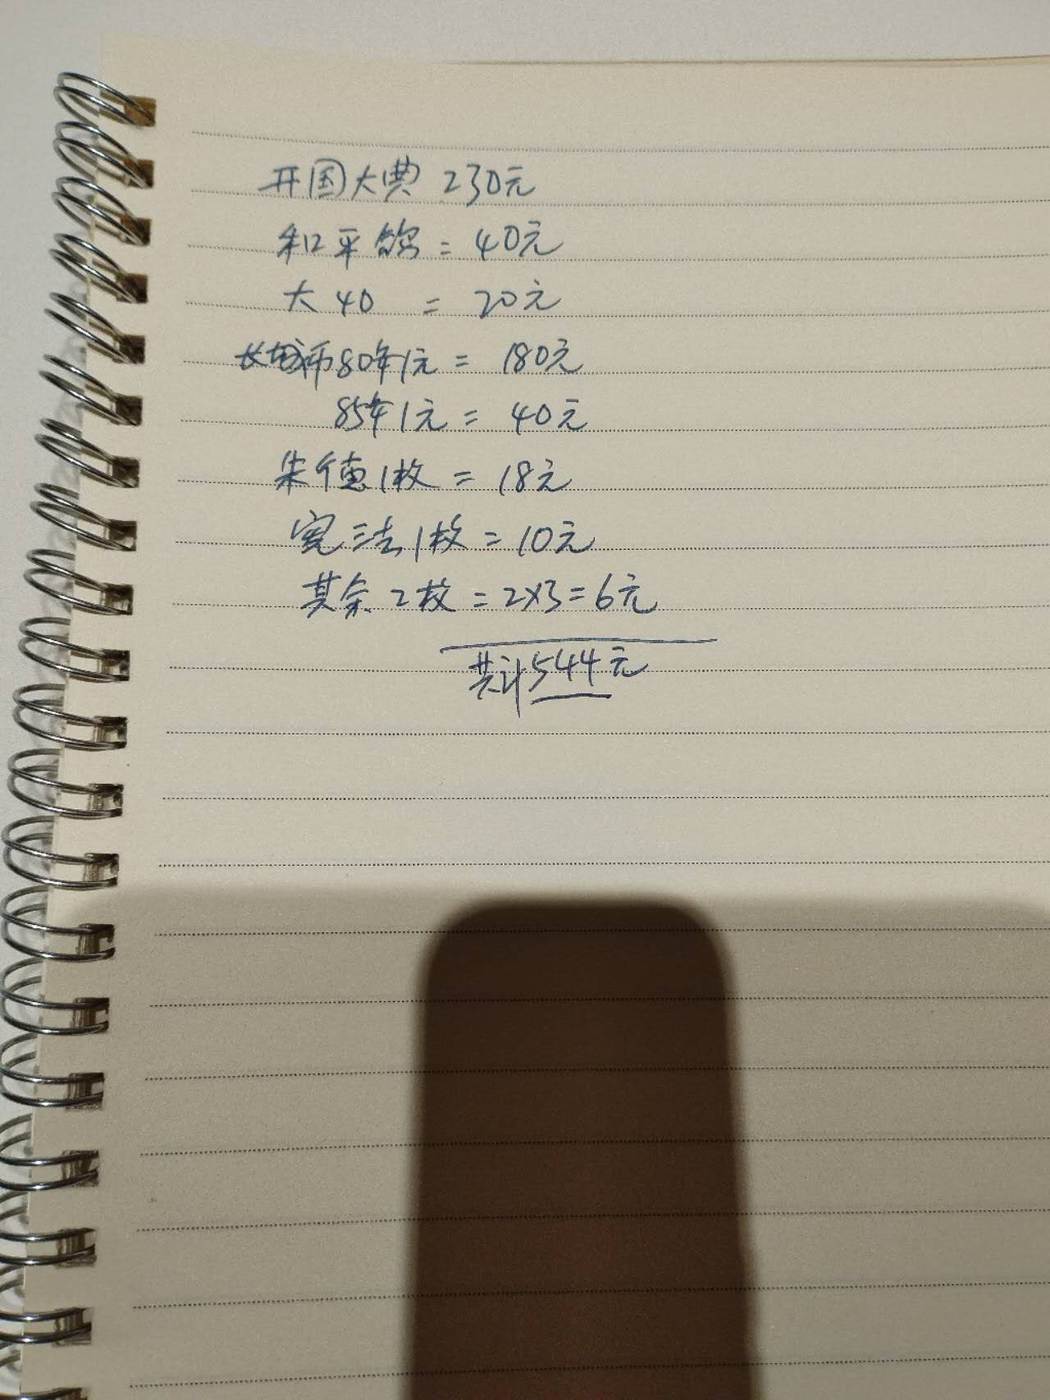 开国大典 230元
和平鸽 = 40元
大40 = 20元
长城币80年1元 = 180元
85年1元 = 40元
朱德1枚 = 18元
宪法1枚 = 10元
其余2枚 = 2×3=6元
共计544元